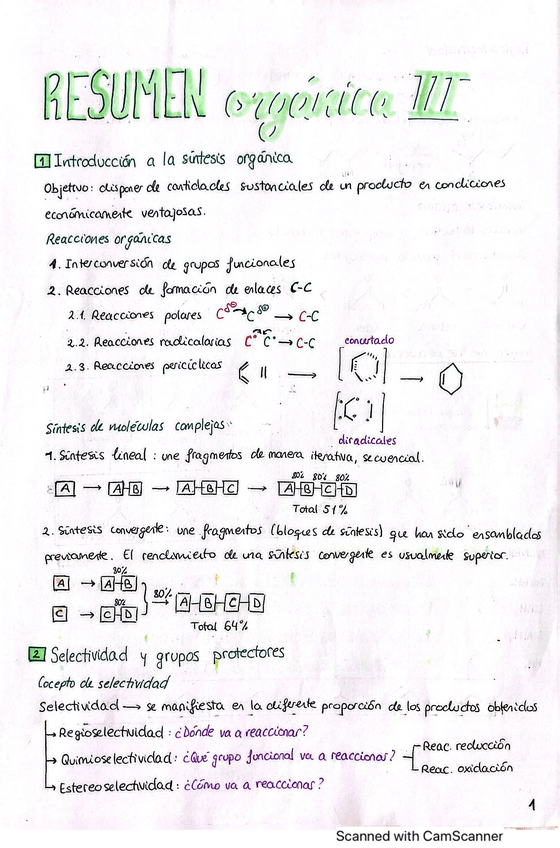 RESUMEN orgánica III
1 Introducción a la síntesis orgánica
Objetivo: disponer de cantidades sustanciales de un producto en condiciones
económicamente ventajosas.
Reacciones orgánicas
1. Interconversión de grupos funcionales
2. Reacciones de formación de enlaces C-C
2.1. Reacciones polares C δ⊖ C δ⊕ → C-C
2.2. Reacciones radicalarias C• C• → C-C
concertado
2.3. Reacciones pericíclicas
diradicales
Síntesis de moléculas complejas
1. Síntesis lineal: une fragmentos de manera iterativa, secuencial.
80% 80% 80%
A → A-B → A-B-C → A-B-C-D
Total 51%
2. Síntesis convergente: une fragmentos (bloques de síntesis) que han sido ensamblados
previamente. El rendimiento de una síntesis convergente es usualmente superior.
80%
A → A-B
80% → A-B-C-D
80%
C → C-D
Total 64%
2 Selectividad y grupos protectores
Cocepto de selectividad
Selectividad → se manifiesta en la diferente proporción de los productos obtenidos
→ Regioselectividad: ¿Dónde va a reaccionar?
→ Quimioselectividad: ¿Qué grupo funcional va a reaccionar?
Reac. reducción
Reac. oxidación
→ Estereoselectividad: ¿Cómo va a reaccionar?
1
Scanned with CamScanner